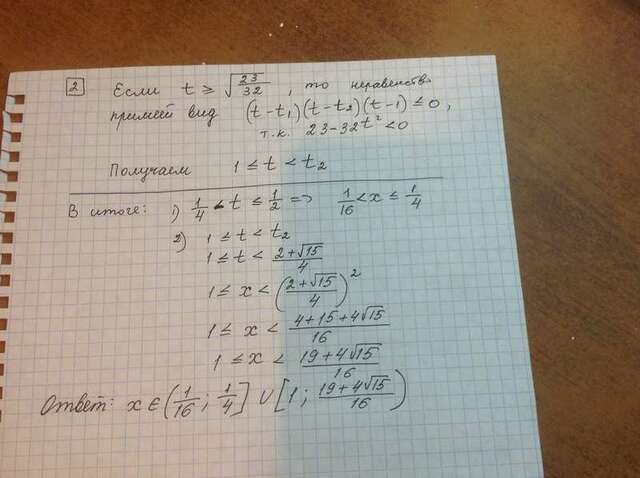 2 Если t ≥ √(23/32), то неравенств
примет вид (t-t₁)(t-t₂)(t-1) ≤ 0,
т.к. 23-32t² < 0
Получаем 1 ≤ t < t₂
В итоге: 1) 1/4 < t ≤ 1/2 => 1/16 < x ≤ 1/4
2) 1 ≤ t < t₂
1 ≤ t < (2+√15)/4
1 ≤ x < ((2+√15)/4)²
1 ≤ x < (4+15+4√15)/16
1 ≤ x < (19+4√15)/16
Ответ: x ∈ (1/16; 1/4] ∪ [1; (19+4√15)/16)